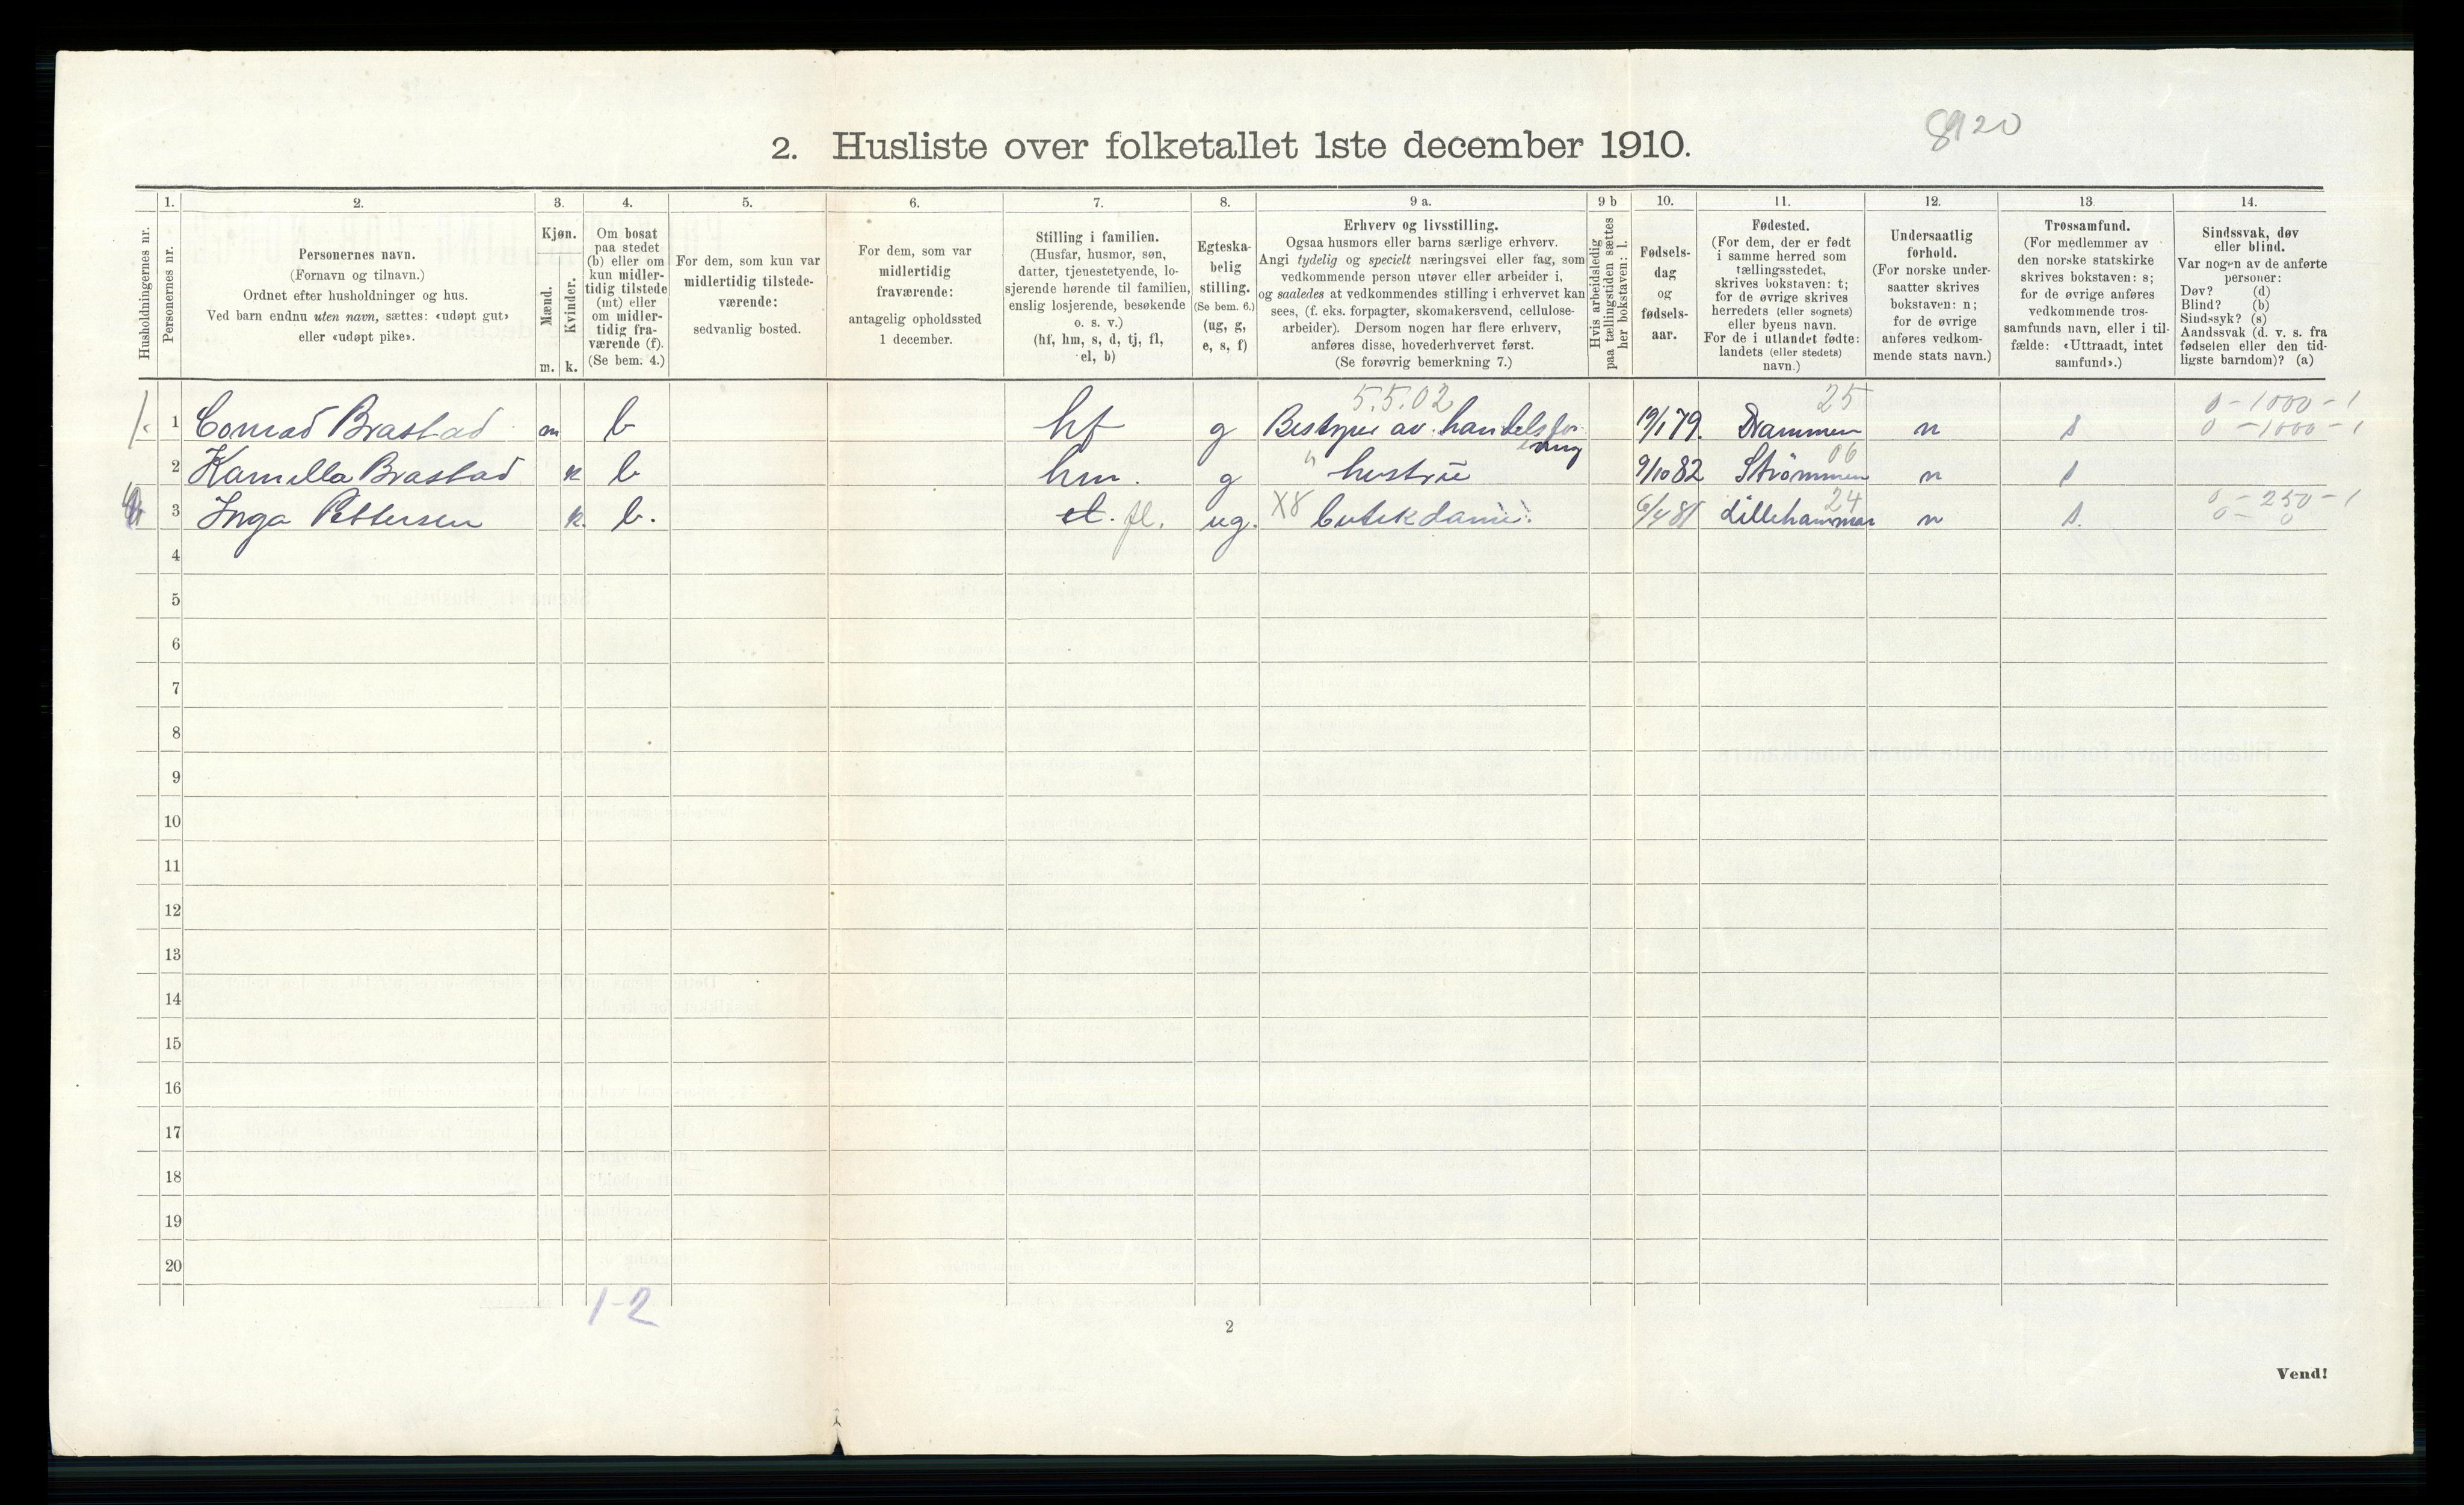 8920
2. Husliste over folketallet 1ste december 1910.
Husholdningernes nr.
1.
Personernes nr.
2.
Personernes navn.
(Fornavn og tilnavn.)
Ordnet efter husholdninger og hus.
Ved barn endnu uten navn, sættes: «udøpt gut»
eller «udøpt pike».
3.
Kjøn.
Mænd.
Kvinder.
m. k.
4.
Om bosat
paa stedet
(b) eller om
kun midler-
tidig tilstede
(mt) eller
om midler-
tidig fra-
værende (f).
(Se bem. 4.)
5.
For dem, som kun var
midlertidig tilstede-
værende:
sedvanlig bosted.
6.
For dem, som var
midlertidig
fraværende:
antagelig opholdssted
1 december.
7.
Stilling i familien.
(Husfar, husmor, søn,
datter, tjenestetyende, lo-
sjerende hørende til familien,
enslig losjerende, besøkende
o. s. v.)
(hf, hm, s, d, tj, fl,
el, b)
8.
Egteska-
belig
stilling.
(Se bem. 6.)
(ug, g,
e, s, f)
9 a.
Erhverv og livsstilling.
Ogsaa husmors eller barns særlige erhverv.
Angi tydelig og specielt næringsvei eller fag, som
vedkommende person utøver eller arbeider i,
og saaledes at vedkommendes stilling i erhvervet kan
sees, (f. eks. forpagter, skomakersvend, cellulose-
arbeider). Dersom nogen har flere erhverv,
anføres disse, hovederhvervet først.
(Se forøvrig bemerkning 7.)
9 b
Hvis arbeidsledig
paa tællingstiden sættes
her bokstaven: l.
10.
Fødsels-
dag
og
fødsels-
aar.
11.
Fødested.
(For dem, der er født
i samme herred som
tællingsstedet,
skrives bokstaven: t;
for de øvrige skrives
herredets (eller sognets)
eller byens navn.
For de i utlandet fødte:
landets (eller stedets)
navn.)
12.
Undersaatlig
forhold.
(For norske under-
saatter skrives
bokstaven: n;
for de øvrige
anføres vedkom-
mende stats navn.)
13.
Trossamfund.
(For medlemmer av
den norske statskirke
skrives bokstaven: s;
for de øvrige anføres
vedkommende tros-
samfunds navn, eller i til-
fælde: «Uttraadt, intet
samfund».)
14.
Sindssvak, døv
eller blind.
Var nogen av de anførte
personer:
Døv? (d)
Blind? (b)
Sindssyk? (s)
Aandssvak (d. v. s. fra
fødselen eller den tid-
ligste barndom)? (a)
5.5.02 25 0-1000-1
1. 1 Conrad Brastad m b hf g Bestyrer av handelsfor- 19/1 79. Drammen n s 0-1000-1
ening 06
2 Kamilla Brastad k b hm. g " hustru 9/10 82 Strömmen n s
24 0-250-1
3 Inga Pettersen k. b. el. fl. ug. X8 butikdame 6/4 81 Lillehammer n s. 0-0
4
5
6
7
8
9
10
11
12
13
14
15
16
17
18
19
20
1-2
2
Vend!